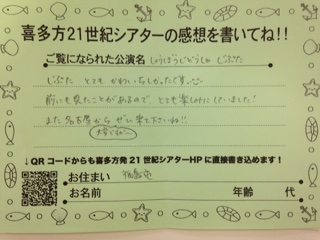 喜多方21世紀シアターの感想を書いてね!!
ご覧になられた公演名 しょうぼうじどうしゃ じぷた
じぷた とても かわいらしかったです
前にも見たことがあるので、とても楽しみにしていました!
また名古屋から ぜひ来て下さいね!!
↓QRコードからも喜多方発21世紀シアターHPに直接書き込めます!
お住まい 福島県
お名前 年齢 代